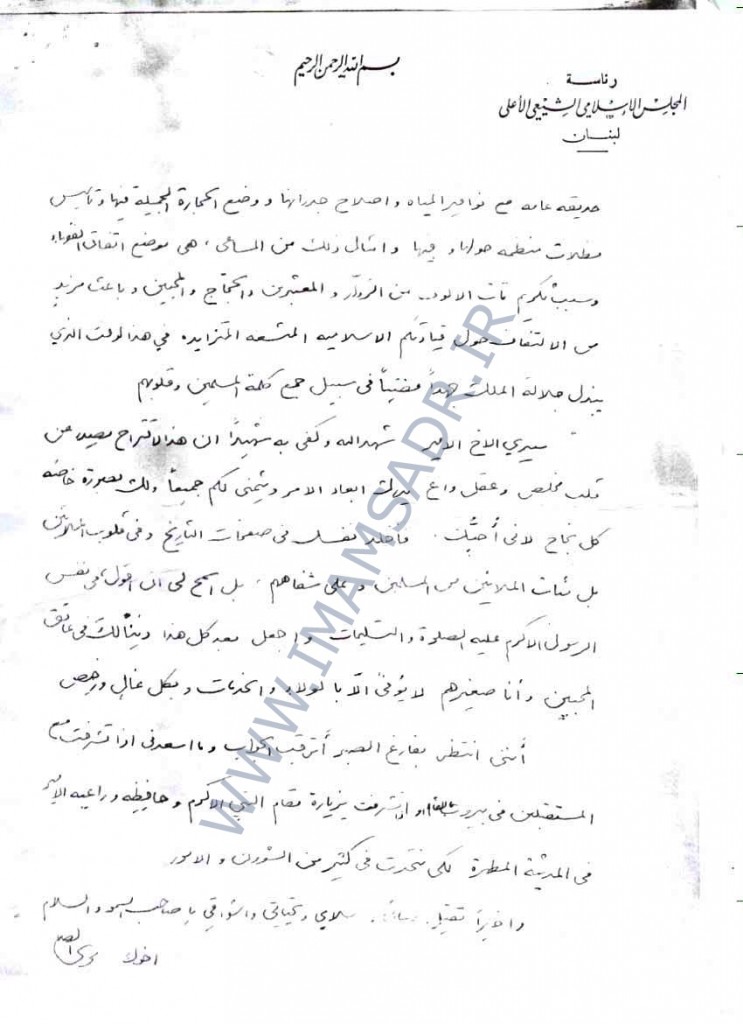 بسم الله الرحمن الرحيم
رئاسة
المجلس الإسلامي الشيعي الأعلى
لبنان
حديقه عامه مع نوافير المياه واصلاح جدرانها ووضع الحجارة الجميلة فيها وتأسيس
مظلات منظمه حولها وفيها وامثال ذلك من المساعي، هي موضع اتفاق الفقهاء
وسبب تكريم مآت الالوف من الزوار والمعتمرين والحجاج والمحبين وباعث مزيد
من الالتفاف حول قيادتكم الاسلاميه المتسعه المتزايده في هذا الوقت الذي
يبذل جلالة الملك جهداً مضنياً في سبيل جمع كلمة المسلمين وقلوبهم
سيدي الاخ الامير شهد الله وكفى به شهيداً ان هذا الاقتراح يصدر عن
قلب مخلص وعقل واع يدرك ابعاد الامر ويتمنى لكم جميعاً ولك بصورة خاصه
كل نجاح لاني أُحبُّك. فاخلد نفسك في صفحات التاريخ وفي قلوب
بل مئات الملايين من المسلمين وعلى شفاهم، بل اسمح لي ان اقول، في نفس
الرسول الاكرم عليه الصلوة والتسليمات واجعل بعد كل هذا ديناً لك في عاتق
المحبين وأنا صغيرهم لا يوفى الّا بالولاء والخدمات وبكل غالٍ ورخيص
أنني انتظر بفارغ الصبر أترقب الجواب وما اسعدني اذا تشرفت
المستقبلين في بيروت او اذا تشرفت بزيارة مقام النبي الاكرم وحافظه وراعيه الامير
في المدينة المطهرة لكي نتحدث في كثير من الشؤون والامور
واخيراً تقبل سلامي وتحياتي واشواقي يا صاحب السمو والسلام
اخوك موسى الصدر
WWW.IMAMSADR.IR